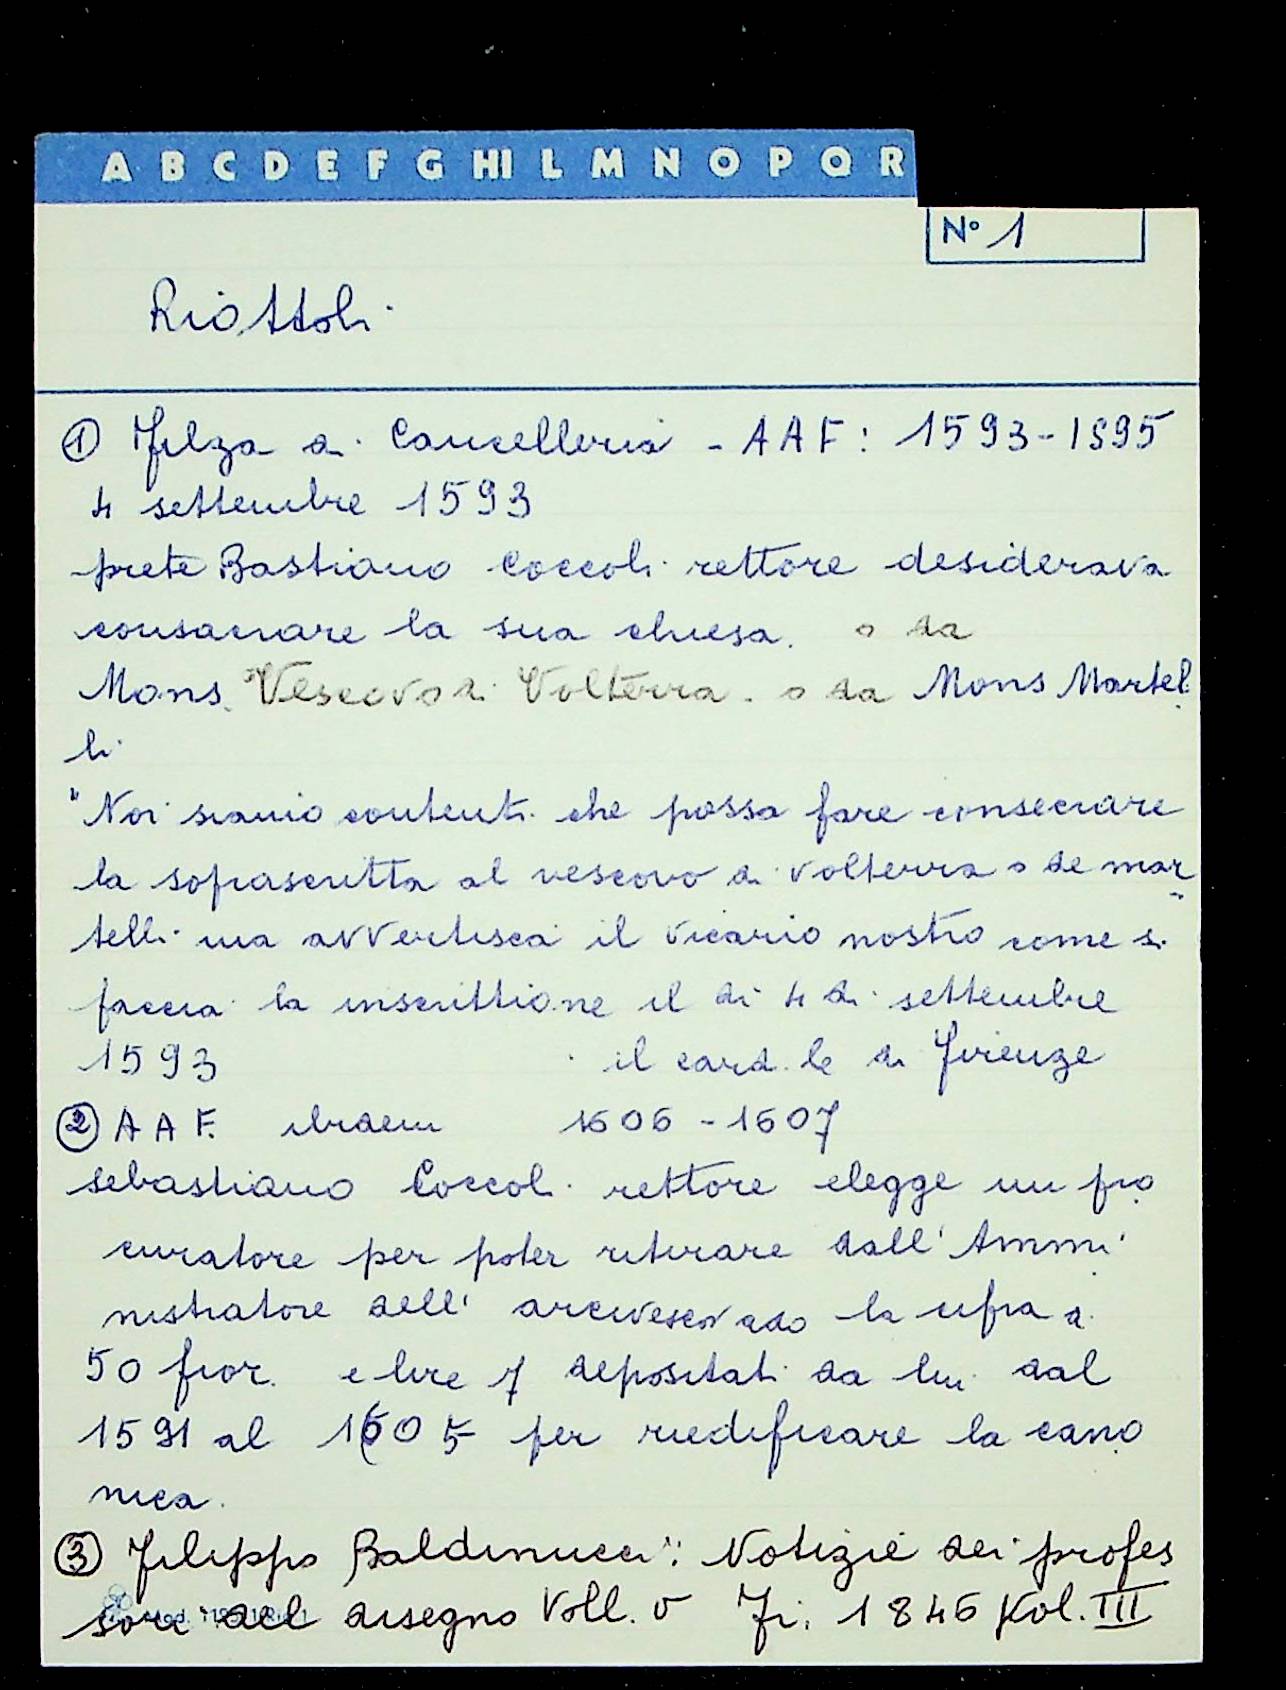 A B C D E F G HI L M N O P Q R
N° 1
Riottoli
① Filza di Cancelleria - AAF: 1593-1595
4 settembre 1593
prete Bastiano Coccoli rettore desiderava
consacrare la sua chiesa. o da
Mons. Vescovo di Volterra. o da Mons Martel
li.
"Noi siamo contenti che possa fare consecrare
la soprascritta al vescovo di Volterra o de mar
telli ma avvertisca il vicario nostro come si
faccia la inscrittione il di 4 di settembre
1593 il card. le di Firenze
② AAF. ibidem 1606-1607
Sebastiano Coccoli rettore elegge un pro
curatore per poter ritirare dall'Ammi
nistratore dell'arcivescovado la cifra di
50 fior. e lire 7 depositati da lui dal
1591 al 1605 per riedificare la cano
nica.
③ Filippo Baldinucci: Notizie dei profes
sori del disegno Voll. 5 Fi. 1846 Vol. III